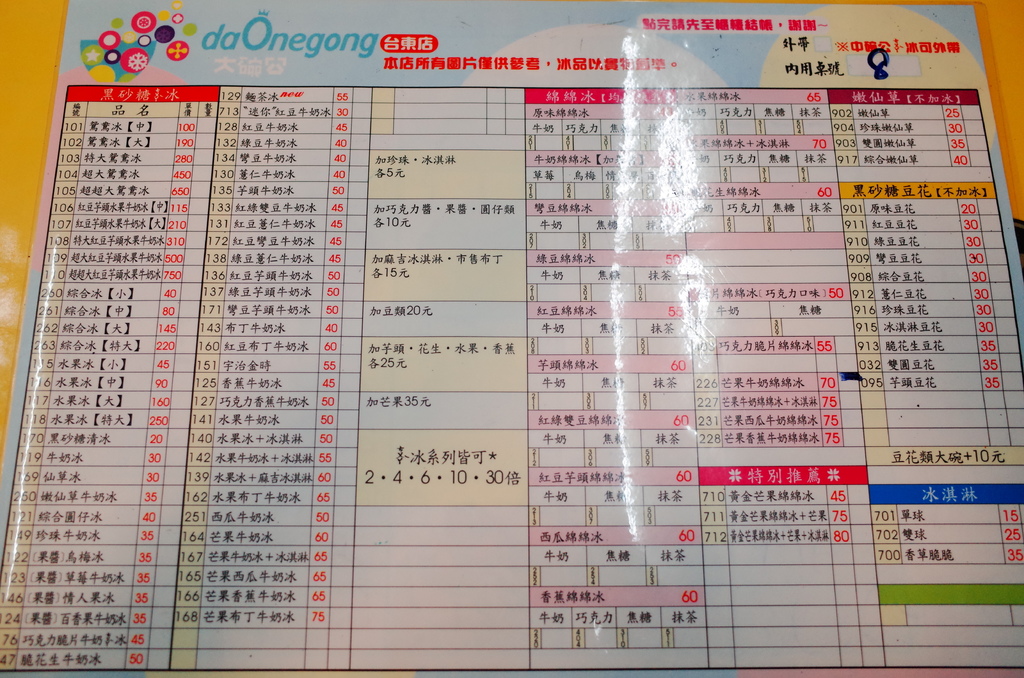 daOnegong 台東店
大碗公
本店所有圖片僅供參考，冰品以實物為準。
點完請先至櫃檯結帳，謝謝~
外帶 ※中碗公ㄘㄨㄚˋ冰司外帶
內用桌號 8
黑砂糖ㄘㄨㄚˋ冰
編號 品名 單價 數量
101 鴛鴦冰【中】 100
102 鴛鴦冰【大】 190
103 特大鴛鴦冰 280
104 超大鴛鴦冰 450
105 超超大鴛鴦冰 650
106 紅豆芋頭水果牛奶冰【中】 115
107 紅豆芋頭水果牛奶冰【大】 210
108 特大紅豆芋頭水果牛奶冰 310
109 超大紅豆芋頭水果牛奶冰 500
110 超超大紅豆芋頭水果牛奶冰 750
260 綜合冰【小】 40
261 綜合冰【中】 80
262 綜合冰【大】 145
263 綜合冰【特大】 220
115 水果冰【小】 45
116 水果冰【中】 90
117 水果冰【大】 160
118 水果冰【特大】 250
170 黑砂糖清冰 20
119 牛奶冰 30
169 仙草冰 30
260 嫩仙草牛奶冰 35
121 綜合圓仔冰 40
149 珍珠牛奶冰 35
122 (果醬)烏梅冰 35
123 (果醬)草莓牛奶冰 35
146 (果醬)情人果冰 35
124 (果醬)百香果牛奶冰 35
76 巧克力脆片牛奶ㄘㄨㄚˋ冰 45
47 脆花生牛奶冰 50
129 麵茶冰 new 55
713 "迷你"紅豆牛奶冰 30
128 紅豆牛奶冰 45
132 綠豆牛奶冰 40
134 彎豆牛奶冰 40
130 薏仁牛奶冰 40
135 芋頭牛奶冰 50
133 紅綠雙豆牛奶冰 45
131 紅豆薏仁牛奶冰 45
172 紅豆彎豆牛奶冰 45
138 綠豆薏仁牛奶冰 45
136 紅豆芋頭牛奶冰 50
137 綠豆芋頭牛奶冰 50
171 彎豆芋頭牛奶冰 50
143 布丁牛奶冰 40
160 紅豆布丁牛奶冰 60
151 宇治金時 55
125 香蕉牛奶冰 45
127 巧克力香蕉牛奶冰 50
141 水果牛奶冰 50
140 水果冰+冰淇淋 50
142 水果牛奶冰+冰淇淋 55
139 水果冰+麻吉冰淇淋 60
162 水果布丁牛奶冰 65
251 西瓜牛奶冰 50
164 芒果牛奶冰 60
167 芒果牛奶冰+冰淇淋 65
165 芒果西瓜牛奶冰 65
166 芒果香蕉牛奶冰 65
168 芒果布丁牛奶冰 75
加珍珠·冰淇淋
各5元
加巧克力醬·果醬·圓仔類
各10元
加麻吉冰淇淋·市售布丁
各15元
加豆類20元
加芋頭·花生·水果·香蕉
各25元
加芒果35元
ㄘㄨㄚˋ冰系列皆可*
2·4·6·10·30倍
綿綿冰【均
原味綿綿冰
牛奶 巧克力 焦糖
牛奶綿綿冰【加
草莓 烏梅
彎豆綿綿冰
牛奶 焦糖
綠豆綿綿冰 50
牛奶 焦糖 抹茶
紅豆綿綿冰 55
牛奶 抹茶
芋頭綿綿冰 60
牛奶 焦糖 抹茶
紅綠雙豆綿綿冰 60
牛奶 焦糖 抹茶
紅豆芋頭綿綿冰 60
牛奶 焦糖 抹茶
西瓜綿綿冰 60
牛奶 焦糖 抹茶
香蕉綿綿冰 60
牛奶 巧克力 焦糖 抹茶
水果綿綿冰 65
牛奶 巧克力 焦糖 抹茶
果綿綿冰+冰淇淋 70
巧克力 焦糖 抹茶
花生綿綿冰 60
牛奶 巧克力 焦糖 抹茶
片綿綿冰(巧克力口味) 50
牛奶 焦糖
巧克力脆片綿綿冰 55
226 芒果牛奶綿綿冰 70
227 芒果牛奶綿綿冰+冰淇淋 75
231 芒果西瓜牛奶綿綿冰 75
228 芒果香蕉牛奶綿綿冰 75
特別推薦
710 黃金芒果綿綿冰 45
711 黃金芒果綿綿冰+芒果 75
712 黃金芒果綿綿冰+芒果+冰淇淋 80
嫩仙草【不加冰】
902 嫩仙草 25
904 珍珠嫩仙草 30
903 雙圓嫩仙草 35
917 綜合嫩仙草 40
黑砂糖豆花【不加冰】
901 原味豆花 20
911 紅豆豆花 30
910 綠豆豆花 30
909 彎豆豆花 30
908 綜合豆花 30
912 薏仁豆花 30
916 珍珠豆花 30
915 冰淇淋豆花 30
913 脆花生豆花 35
032 雙圓豆花 35
095 芋頭豆花 35
豆花類大碗+10元
冰淇淋
701 單球 15
702 雙球 25
700 香草脆脆 35